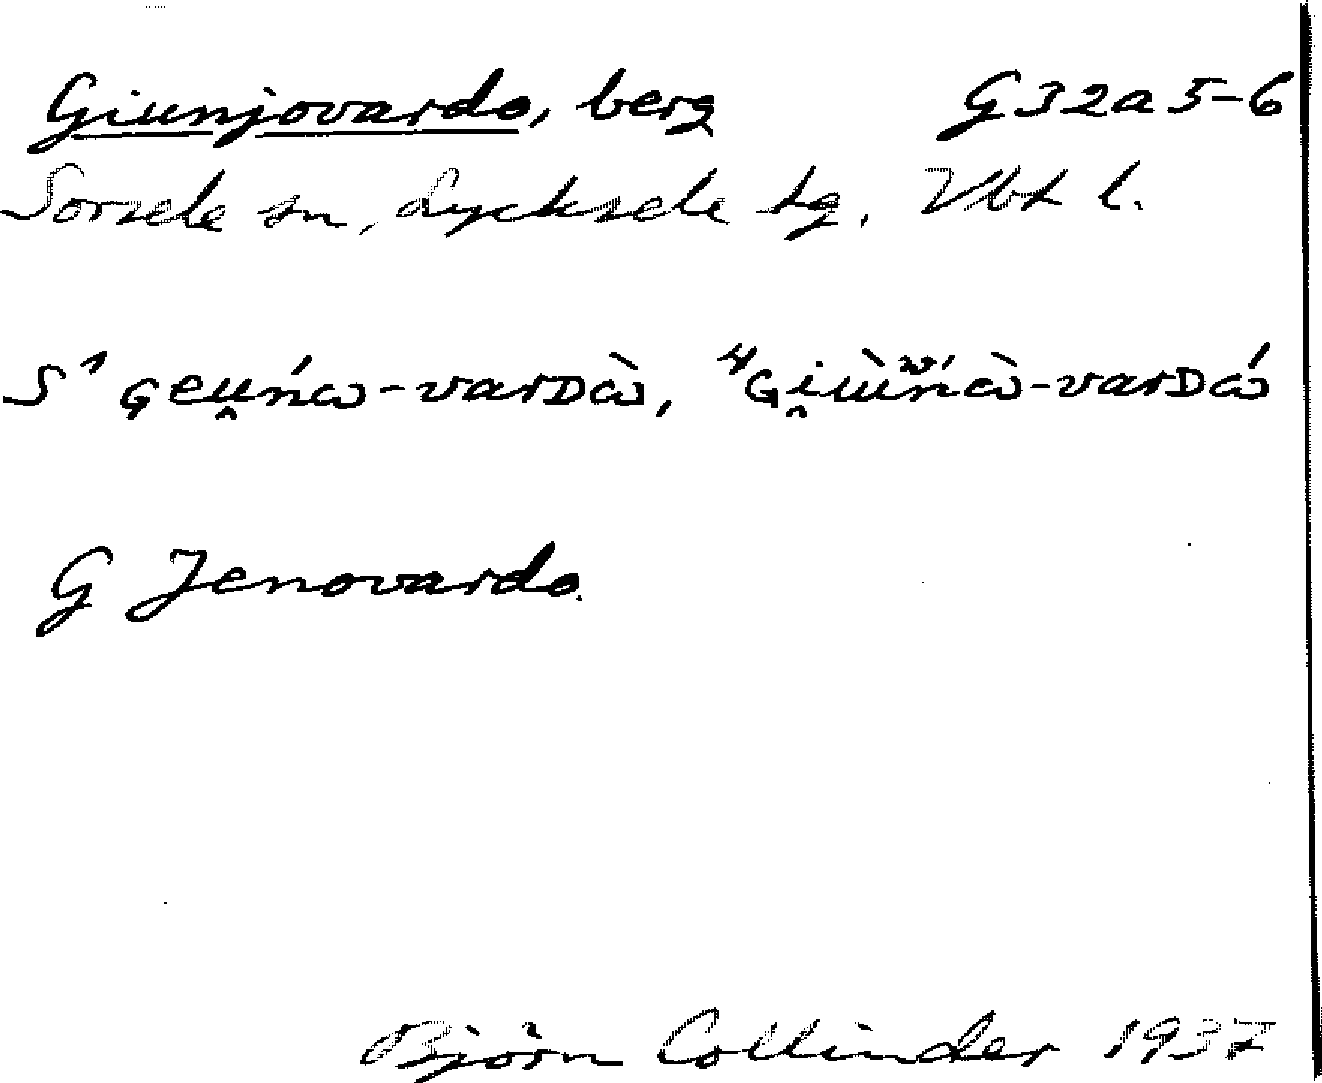 Giunjovardo, berg G32a5-6
Sorsele sn, Lycksele tg, Vbt l.
S¹ ɢeu̯ńω-varᴅὼ, ⁴ɢi̯ùẁńὼ-varᴅώ
G Jenovardo.
Björn Collinder 1937